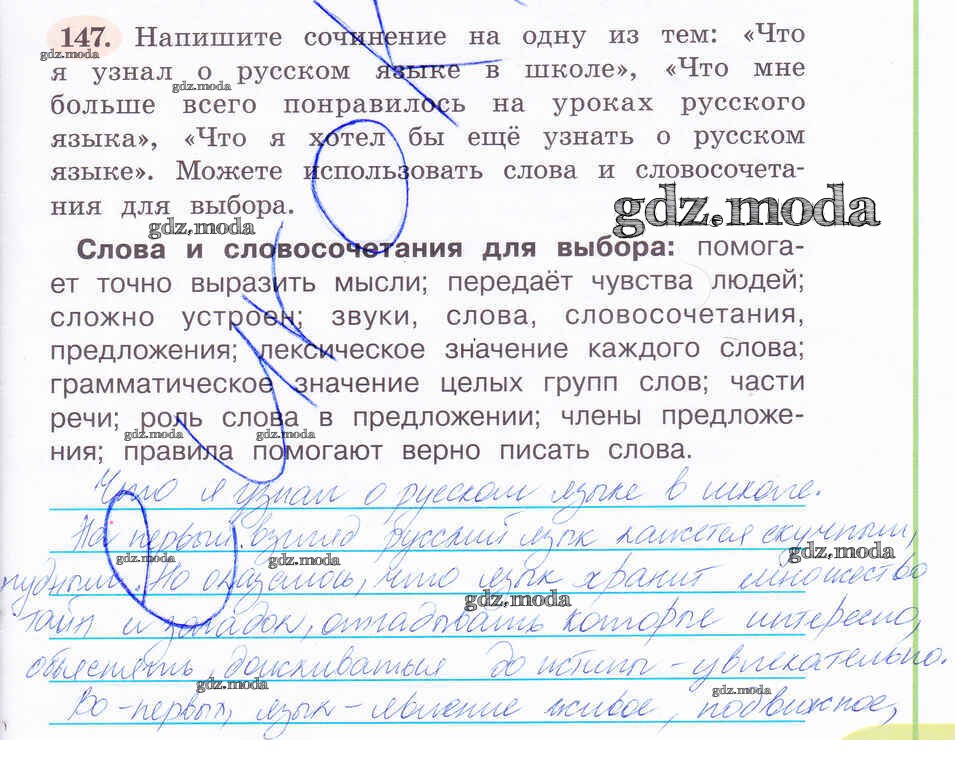 147. Напишите сочинение на одну из тем: «Что
gdz.moda
я узнал о русском языке в школе», «Что мне
gdz.moda
больше всего понравилось на уроках русского
языка», «Что я хотел бы ещё узнать о русском
языке». Можете использовать слова и словосочета-
ния для выбора.
gdz.moda
gdz.moda
Слова и словосочетания для выбора: помога-
ет точно выразить мысли; передаёт чувства людей;
сложно устроен; звуки, слова, словосочетания,
предложения; лексическое значение каждого слова;
грамматическое значение целых групп слов; части
речи; роль слова в предложении; члены предложе-
gdz.moda gdz.moda
ния; правила помогают верно писать слова.
Что я узнал о русском языке в школе.
На первый взгляд русский язык кажется скучным,
gdz.moda gdz.moda gdz.moda
нудным. Но оказалось, что язык хранит множество
gdz.moda
тайн и загадок, отгадывать которые интересно,
объяснять, доискиваться до истины - увлекательно.
gdz.moda gdz.moda
Во-первых, язык - явление живое, подвижное,